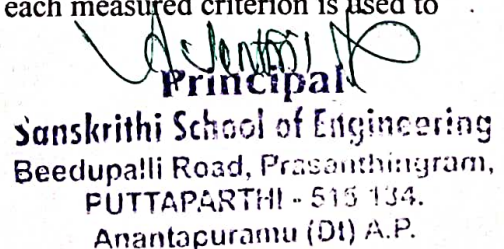 each measured criterion is used to
Principal
Sanskrithi School of Engineering
Beedupalli Road, Prasanthingram,
PUTTAPARTHI - 515 134.
Anantapuramu (Dt) A.P.